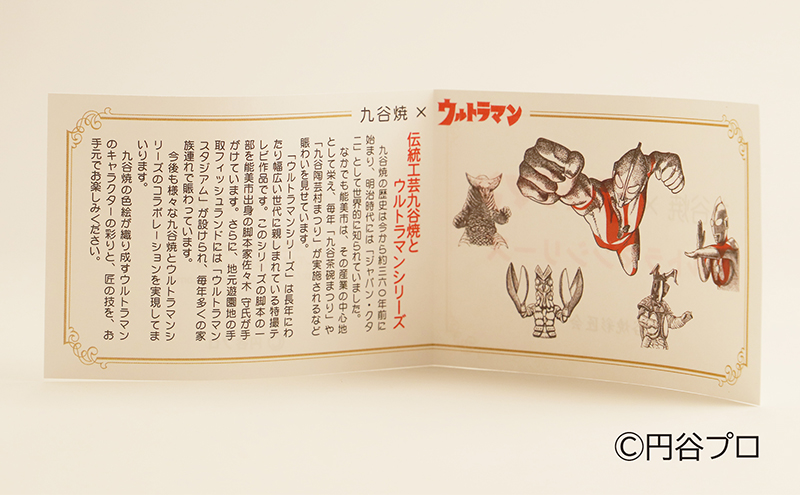 九谷焼 × ウルトラマン
伝統工芸九谷焼と
ウルトラマンシリーズ
九谷焼の歴史は今から約三六〇年前に
始まり、明治時代には「ジャパン・クタ
ニ」として世界的に知られていました。
なかでも能美市は、その産業の中心地
として栄え、毎年「九谷茶碗まつり」や
「九谷陶芸村まつり」が実施されるなど
賑わいを見せています。
「ウルトラマンシリーズ」は長年にわ
たり幅広い世代に親しまれている特撮テ
レビ作品です。このシリーズの脚本の一
部を能美市出身の脚本家佐々木 守氏が手
がけています。さらに、地元遊園地の手
取フィッシュランドには「ウルトラマン
スタジアム」が設けられ、毎年多くの家
族連れで賑わっています。
今後も様々な九谷焼とウルトラマンシ
リーズのコラボレーションを実現してま
いります。
九谷焼の色絵が織り成すウルトラマン
のキャラクターの彩りと、匠の技を、お
手元でお楽しみください。
©円谷プロ